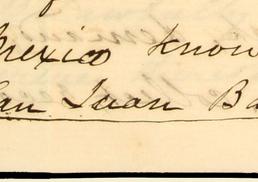 Mexico know
San Juan Ba